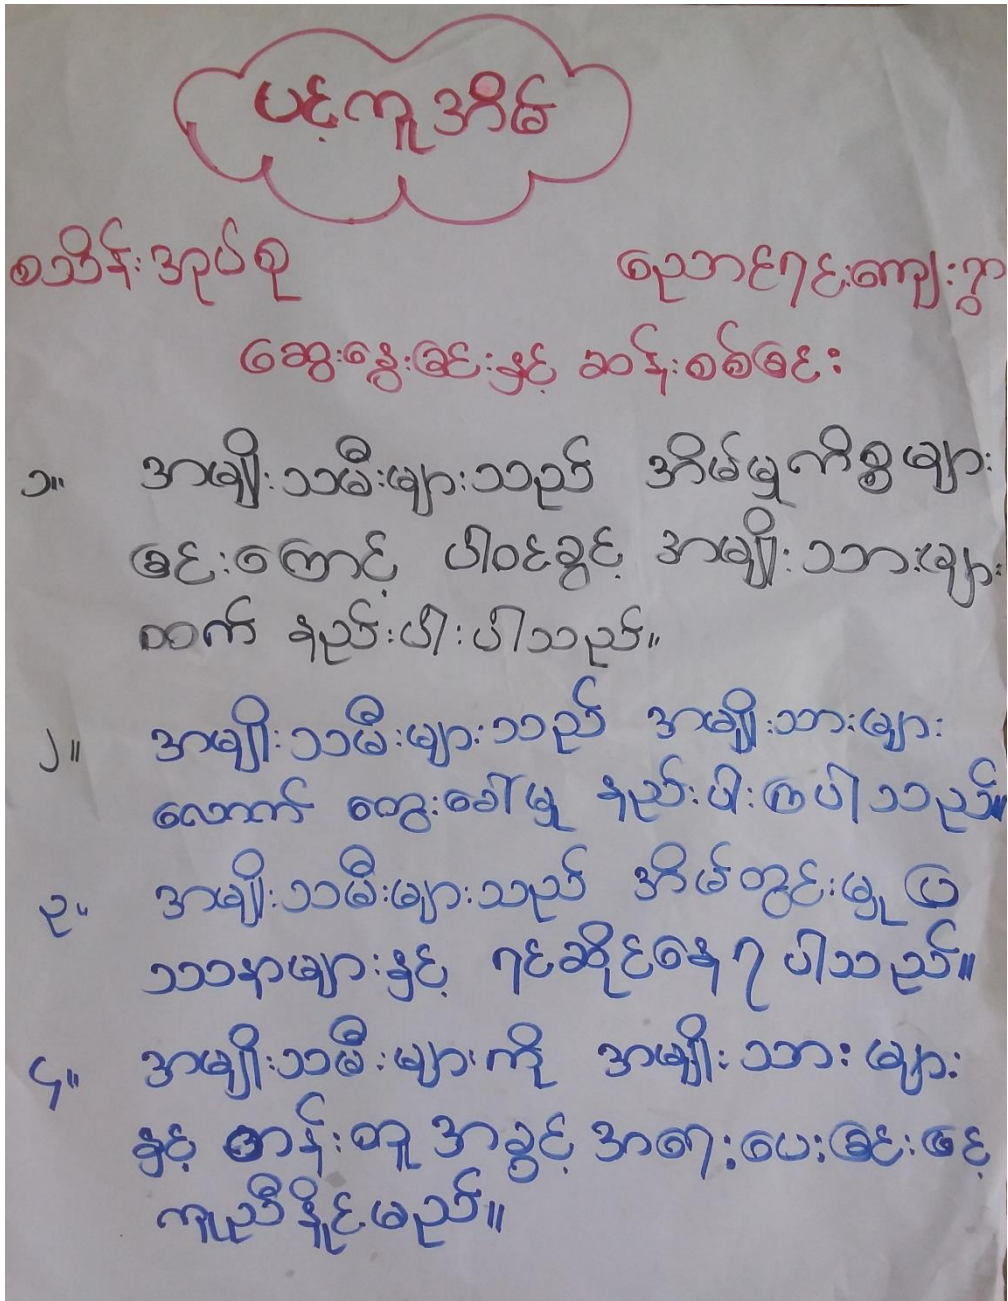 ပင့်ကူအိမ်
စသိန်းအုပ်စု ညောင်ရင်းကျေးရွာ
ဆွေးနွေးခြင်းနှင့် ဆန်းစစ်ခြင်း
၁။ အမျိုးသမီးများသည် အိမ်မှုကိစ္စများ
ခြင်းကြောင့် ပါဝင်ခွင့် အမျိုးသားများ
ထက် နည်းပါးပါသည်။
၂။ အမျိုးသမီးများသည် အမျိုးသားများ
လောက် တွေးခေါ်မှု နည်းပါးကြပါသည်။
၃။ အမျိုးသမီးများသည် အိမ်တွင်းမှု ပြ
ဿနာများနှင့် ရင်ဆိုင်နေရပါသည်။
၄။ အမျိုးသမီးများကို အမျိုးသားများ
နှင့် တန်းတူ အခွင့်အရေးပေးခြင်းဖြင့်
ကူညီနိုင်မည်။